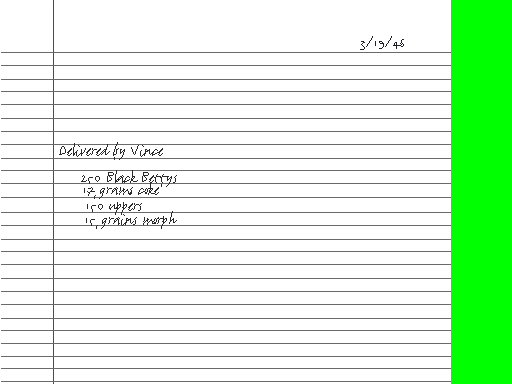 3/19/46
Delivered by Vince
250 Black Bettys
17 grams coke
150 uppers
15 grains morph